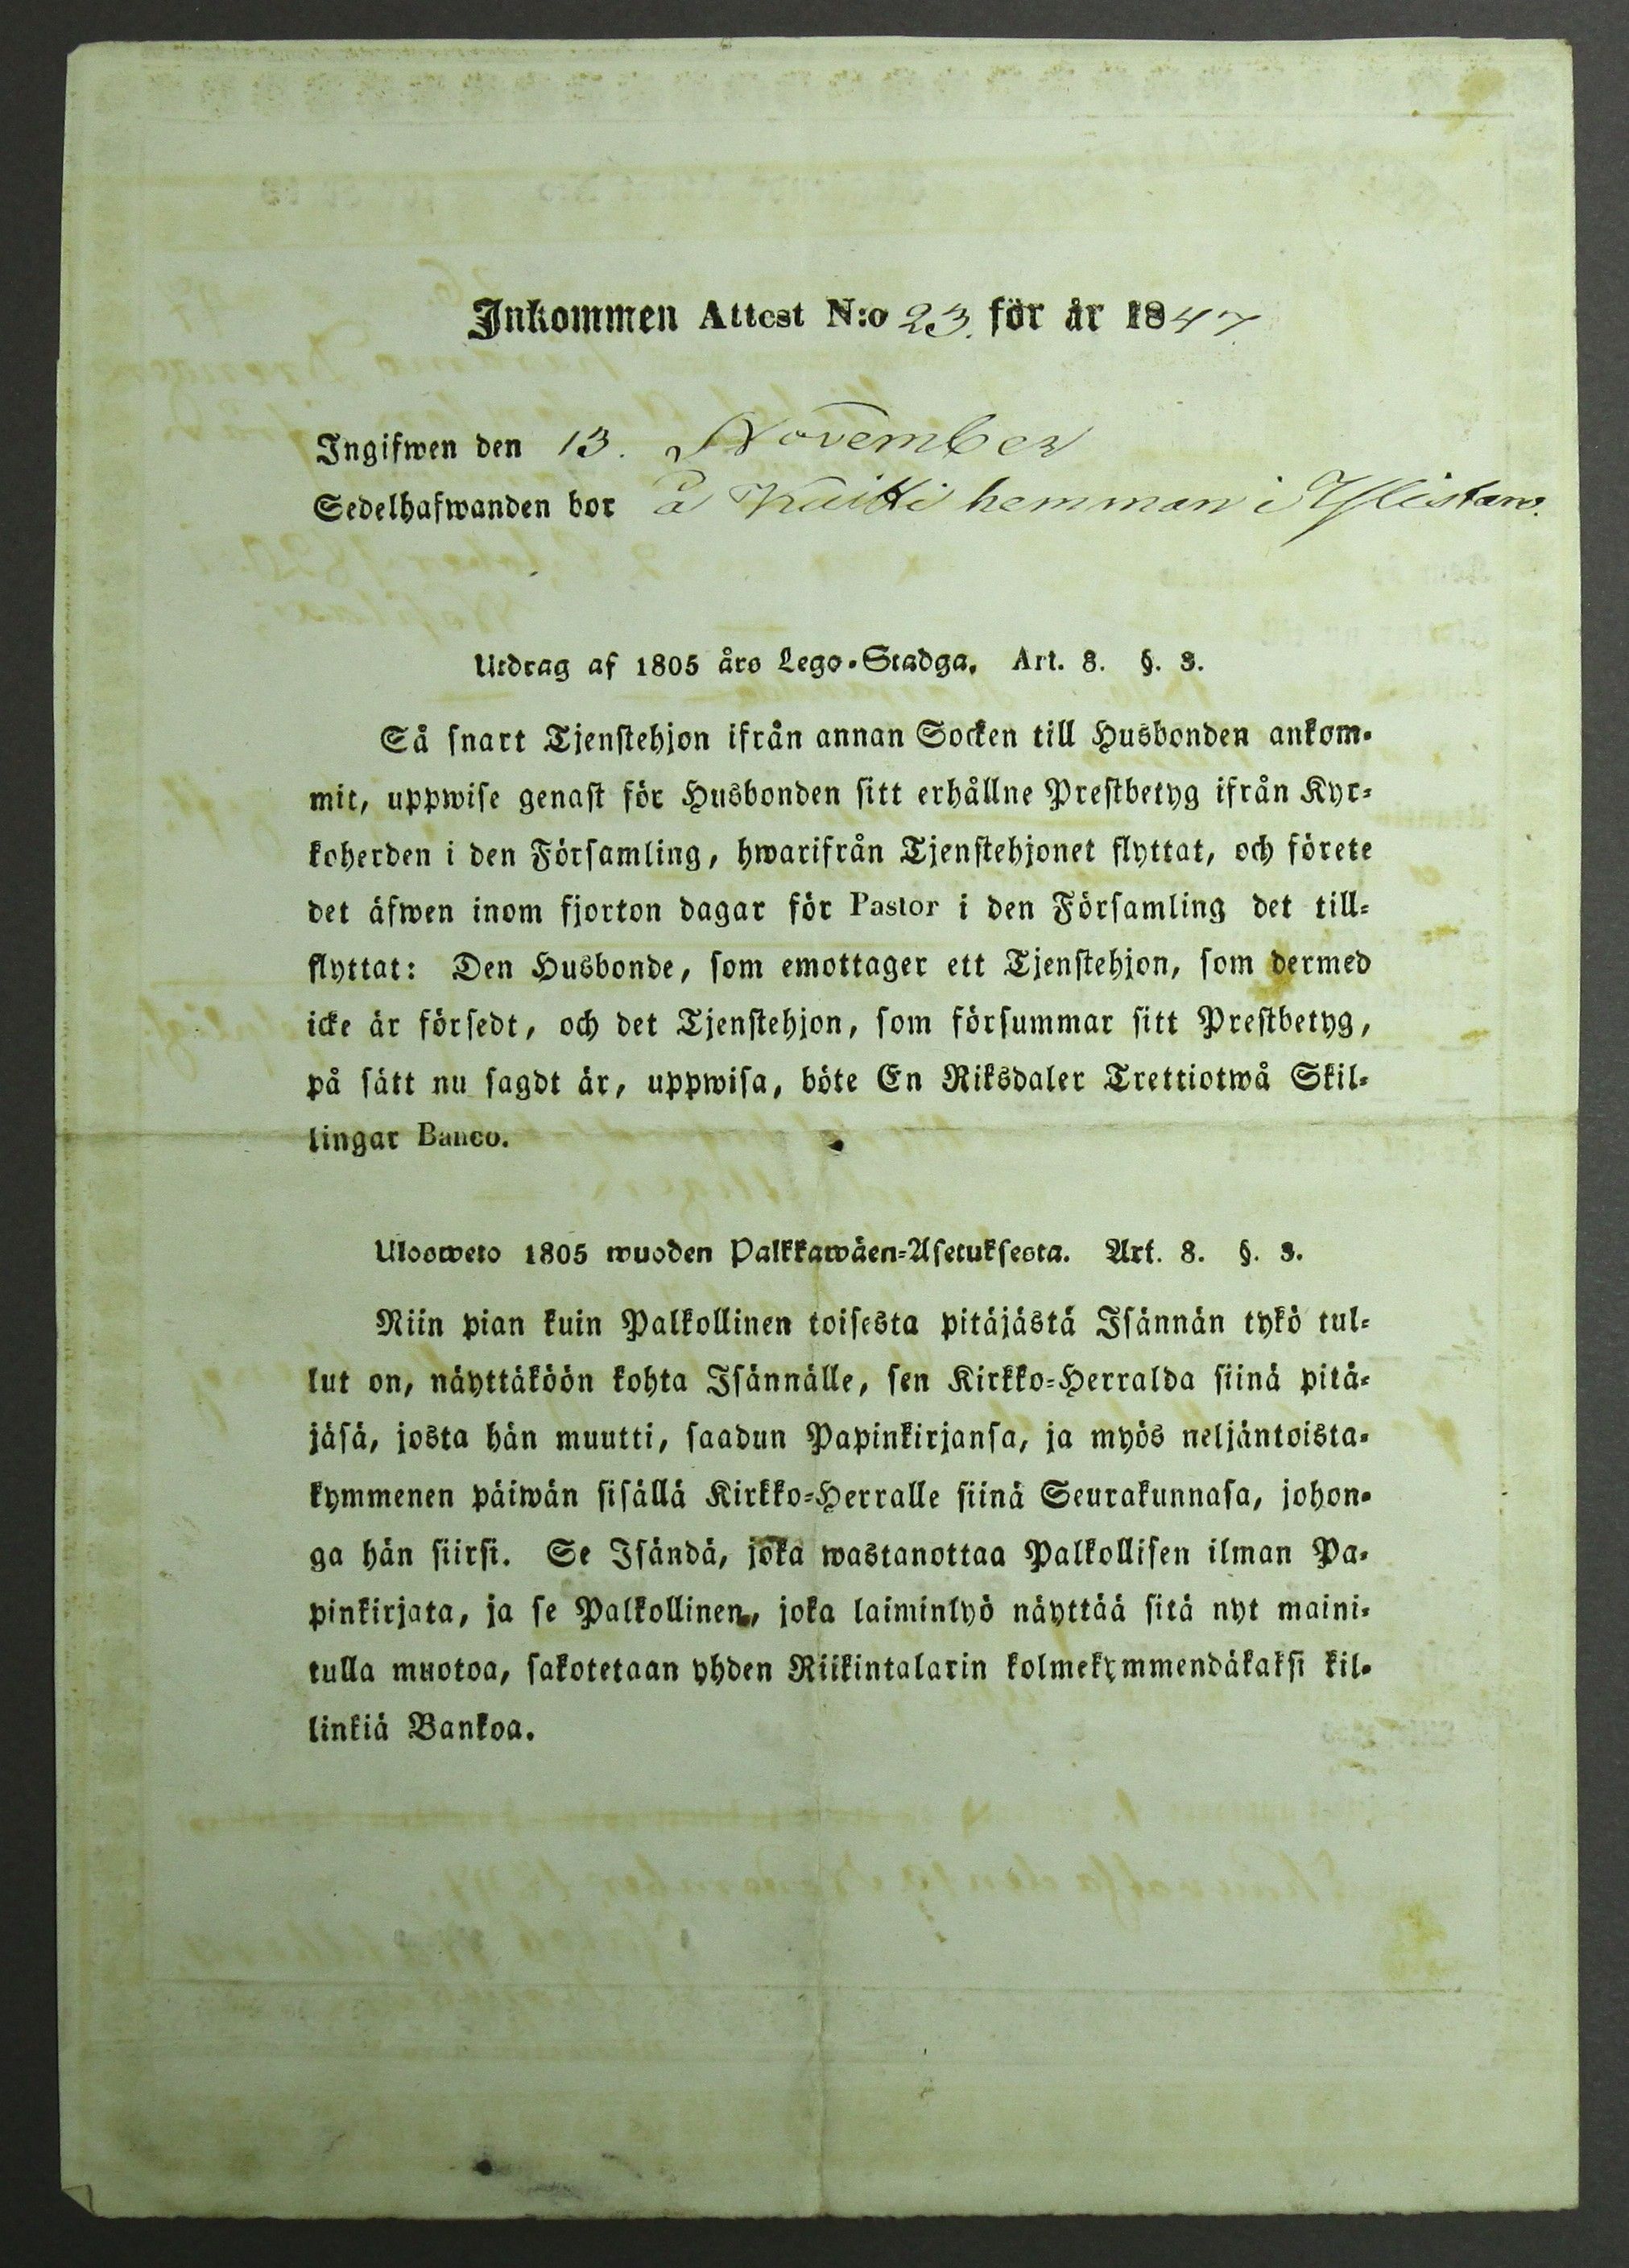 Inkommen Attest N:o 23. för år 1847
Ingifwen den 13. November
Sedelhafwanden bor å Kuitti hemman i Ylistaro.
Utdrag af 1805 års Lego-Stadga, Art. 8. §. 3.
Så snart Tjenstehjon ifrån annan Socken till Husbonden ankom-
mit, uppwise genast för Husbonden sitt erhållne Prestbetyg ifrån Kyr-
koherden i den Församling, hwarifrån Tjenstehjonet flyttat, och förete
det äfwen inom fjorton dagar för Pastor i den Församling det till-
flyttat: Den Husbonde, som emottager ett Tjenstehjon, som dermed
icke är försedt, och det Tjenstehjon, som försummar sitt Prestbetyg,
på sätt nu sagdt är, uppwisa, böte En Riksdaler Trettiotwå Skil-
lingar Banco.
Ulosweto 1805 wuoden Palkkawäen-Asetuksesta. Art. 8. §. 3.
Niin pian kuin Palkollinen toisesta pitäjästä Isännän tykö tul-
lut on, näyttäköön kohta Isännälle, sen Kirkko-Herralda siinä pitä-
jäsä, josta hän muutti, saadun Papinkirjansa, ja myös neljäntoista-
kymmenen päiwän sisällä Kirkko-Herralle siinä Seurakunnasa, johon-
ga hän siirsi. Se Isändä, joka wastanottaa Palkollisen ilman Pa-
pinkirjata, ja se Palkollinen, joka laiminlyö näyttää sitä nyt maini-
tulla muotoa, sakotetaan yhden Riikintalarin kolmekymmendäkaksi kil-
linkiä Bankoa.